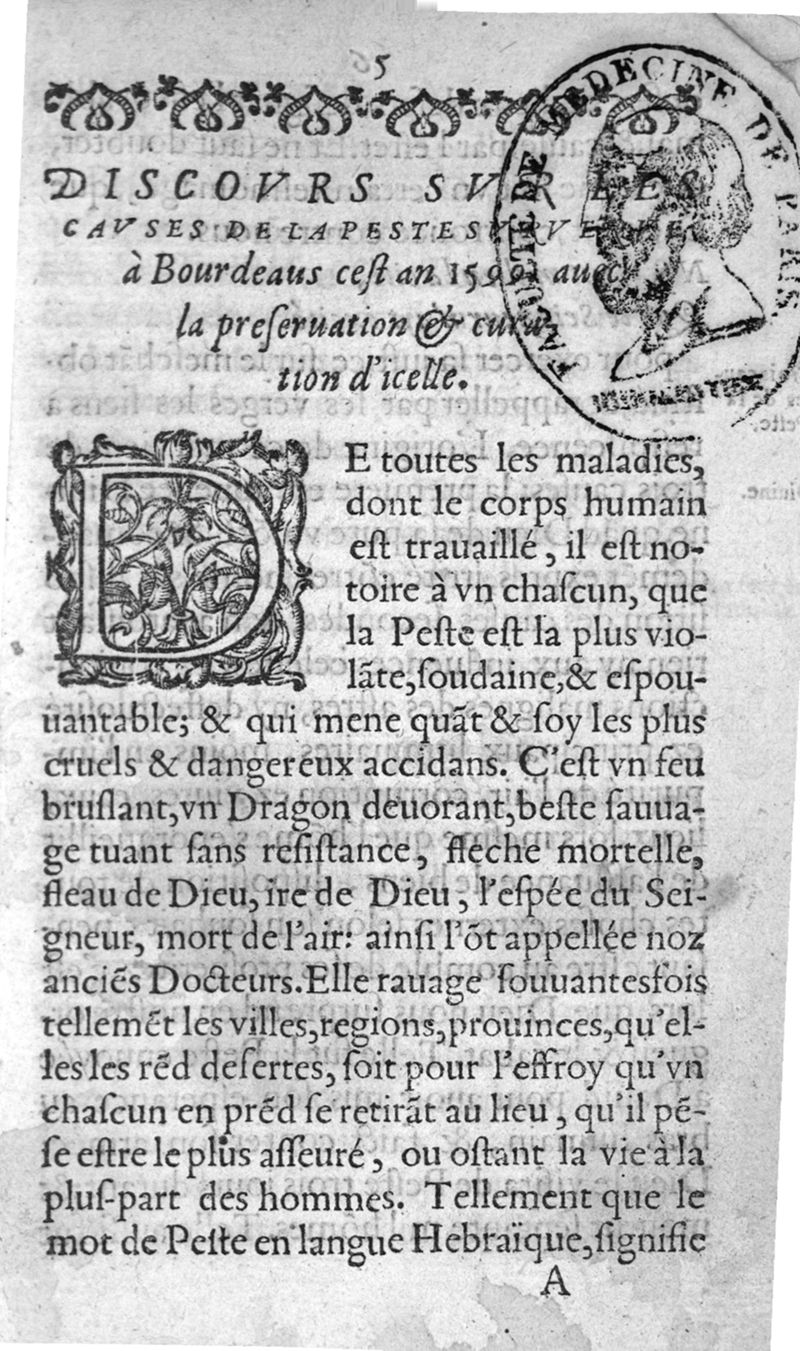 5
DISCOVRS SVR LES
CAVSES DE LA PESTE SVRVENVE
à Bourdeaus ceſt an 1599. auec
la preſeruation & cura-
tion d'icelle.
FACULTE DE MEDECINE DE PARIS
DE toutes les maladies,
dont le corps humain
eſt trauaillé, il eſt no-
toire à vn chaſcun, que
la Peſte eſt la plus vio-
lāte, ſoudaine, & eſpou-
uantable; & qui mene quãt & ſoy les plus
cruels & dangereux accidans. C'eſt vn feu
bruſlant, vn Dragon deuorant, beſte ſauua-
ge tuant ſans reſiſtance, fleche mortelle,
fleau de Dieu, ire de Dieu, l'eſpée du Sei-
gneur, mort de l'air: ainſi l'õt appellée noz
anciẽs Docteurs. Elle rauage ſouuantesfois
tellemẽt les villes, regions, prouinces, qu'el-
les les rẽd deſertes, ſoit pour l'effroy qu'vn
chaſcun en prẽd ſe retirãt au lieu, qu'il pẽ-
ſe eſtre le plus aſſeuré, ou oſtant la vie à la
pluſ-part des hommes. Tellement que le
mot de Peſte en langue Hebraïque, ſignifie
A